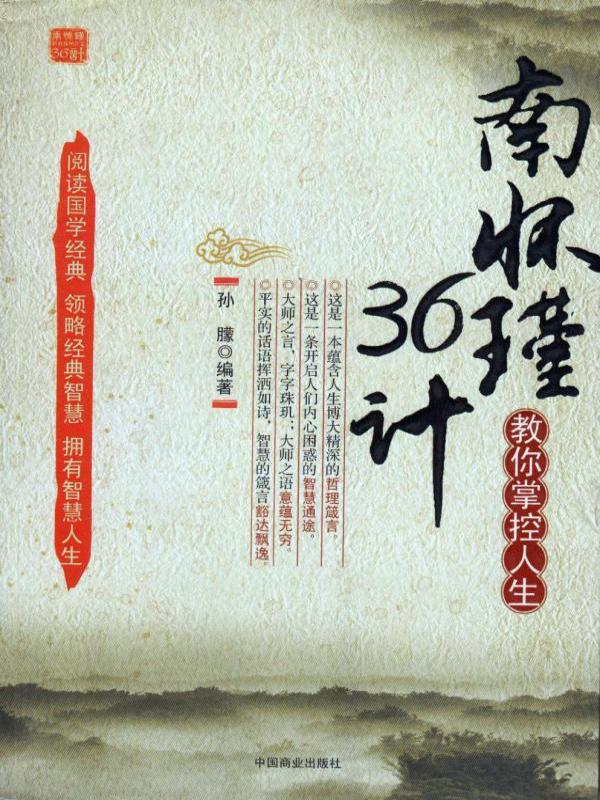 南怀瑾
36计
教你掌控人生
◎这是一本蕴含人生博大精深的哲理箴言。
◎这是一条开启人们内心困惑的智慧通途。
◎大师之言，字字珠玑；大师之语意蕴无穷。
◎平实的话语挥洒如诗，智慧的箴言豁达飘逸。
孙朦◎编著
阅读国学经典 领略经典智慧 拥有智慧人生
南怀瑾
36计
中国商业出版社